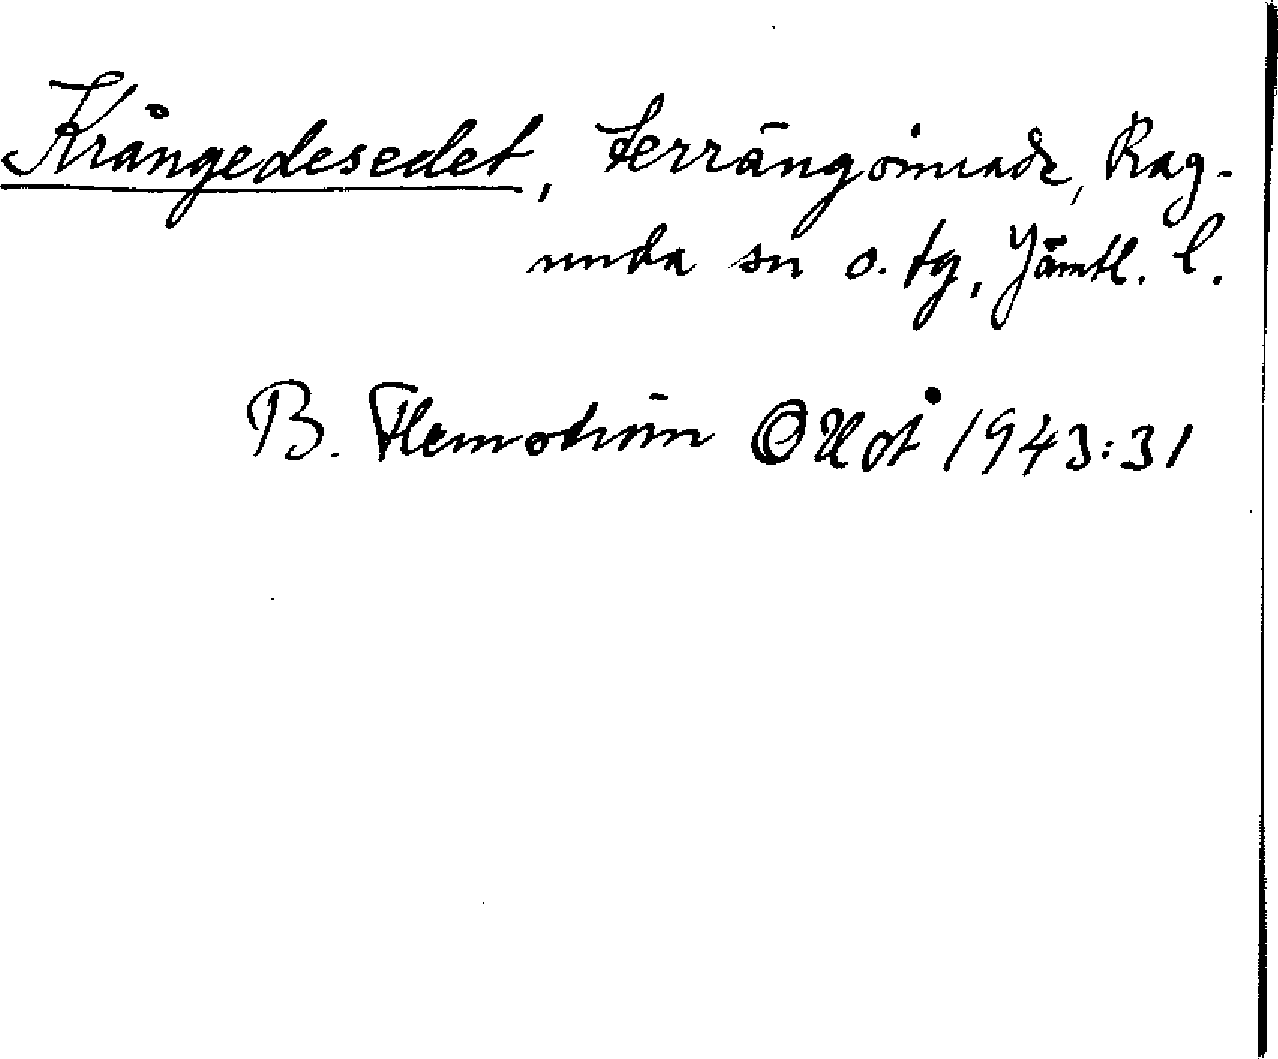 Krångedesedet, terrängområde, Rag-
unda sn o. tg, Jämtl. l.
B. Flemström OUOÅ 1943:31